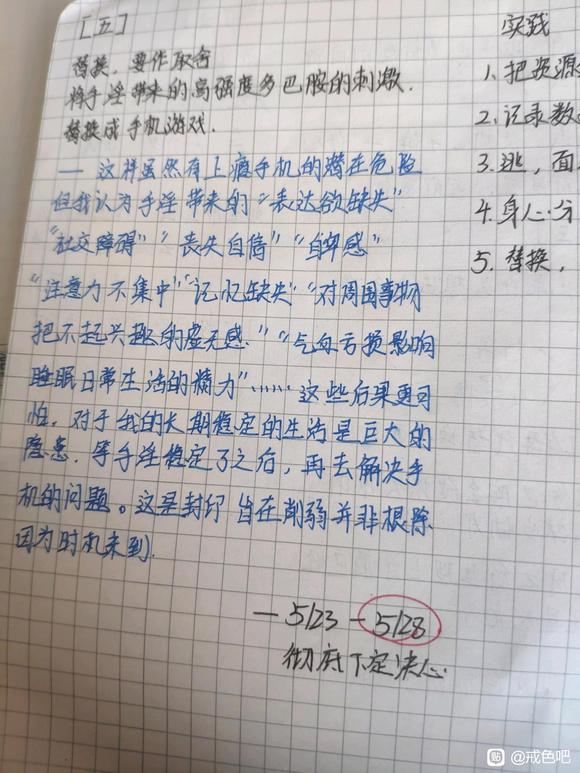 [五]
替换，要作取舍
将手淫带来的高强度多巴胺的刺激.
替换成手机游戏.
— 这样虽然有上瘾手机的潜在危险
但我认为手淫带来的“表达欲缺失”
“社交障碍”“丧失自信”“自卑感”
“注意力不集中”“记忆缺失”“对周围事物
把不起兴趣的虚无感.”“气血亏损影响
睡眠日常生活的精力”……这些后果更可
怕，对于我的长期稳定的生活是巨大的
隐患. 等手淫稳定了之后，再去解决手
机的问题。这是封印 旨在削弱并非根除
因为时机未到.
— 5/23 — 5/28
彻底下定决心
实践
1. 把资源
2. 记录数
3. 逃，面
4. 身心分
5. 替换，
贴 @戒色吧